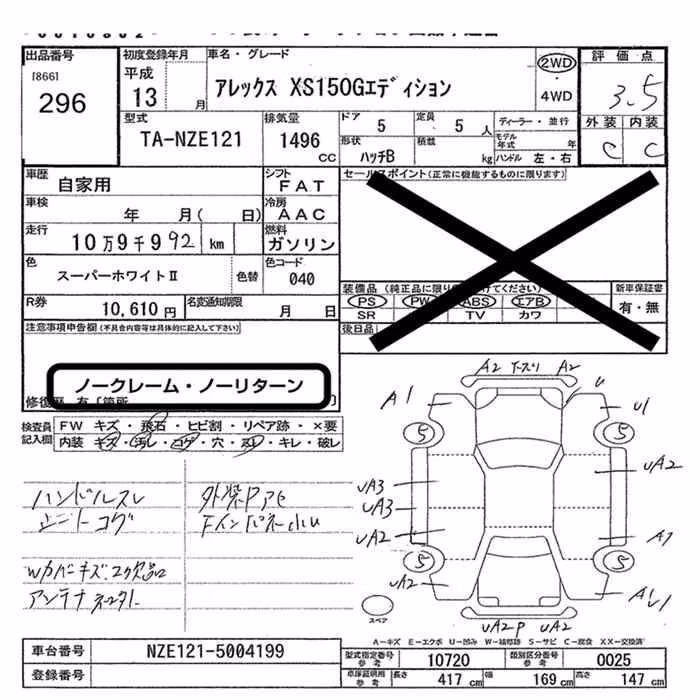 出品番号
[866]
296
初度登録年月
平成
13 月
車名・グレード
アレックス XS150Gエディション
2WD
・
4WD
評価点
3.5
外装 内装
C C
型式
TA-NZE121
排気量
1496 CC
ドア 5
定員 5 人
形状
ハッチB
積載 kg
ディーラー・並行
モデル年式 年
ハンドル 左・右
車歴
自家用
シフト
FAT
車検
年 月( 日)
冷房
AAC
走行
10万9千992 km
燃料
ガソリン
色
スーパーホワイトII
色替
色コード
040
R券
10,610円
名変通知期限
月 日
セールスポイント(正常に機能するものに限ります)
装備品(純正品に限り けてください)
PS PW ABS エアB
SR TV カワ
新車保証書
有・無
後日品
注意事項申告欄(不具合内容等は具体的に記入して下さい)
ノークレーム・ノーリターン
修復歴 有「箇所
検査員記入欄
FW キズ・飛石・ヒビ割・リペア跡・×要
内装 キズ・汚レ・コゲ・穴・スリ・キレ・破レ
ハンドルスレ
シートコゲ
外装PAC
Wカバーキズ.2ケ欠品
アンテナ
A2 A2
U
A1
U1
5 5
UA2
UA3
UA3
UA2
A1
5 5
UA2
A1
U1
UA2P UA2
スペア
A-キズ E-エクボ U-凹み W-補修跡 S-サビ C-腐食 XX-交換済
車台番号
NZE121-5004199
登録番号
型式指定番号 参考
10720
類別区分番号 参考
0025
車庫証明用 参考
長さ 417 cm
幅 169 cm
高さ 147 cm